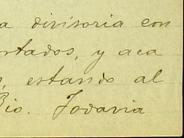 a divisoria con
ortados, y aca
, estando al
Bio. Todavia